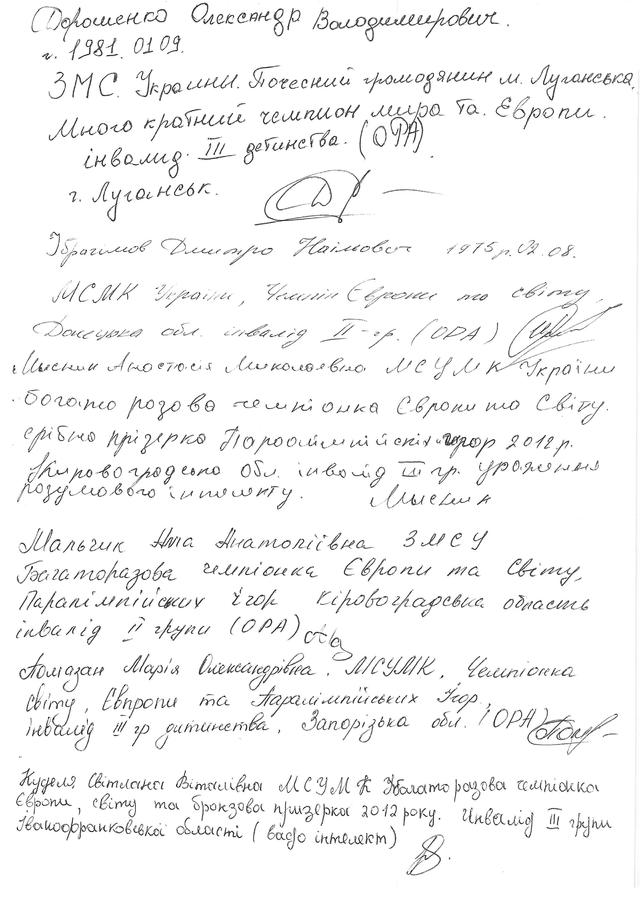 Дорошенко Олександр Володимирович.
г. 1981.01 09.
ЗМС. Украини. Почесний громодянин м. Луганська,
Много кратний чемпион мира та. Европи.
інвалид. III детинства. (ОРА)
г. Луганськ.
Ібрагімов Дмитро Наімович 1975 р. 08.
МСМК України, Чемпін Європи та світу,
Донецька обл. інвалід II-гр. (ОРА)
Мысник Анастасія Миколаєвна МСУМК України
богато розова чемпіонка Європи та Світу.
срібна прізерка Пароолімпійскіх игор 2012 р.
Кировоградська обл. інвалід III гр. ураження
розумового інтелекту. Мысник
Мальчик Яна Анатоліївна ЗМСУ
Багаторазова чемпіонка Європи та Світу,
Паралімпійских Ігор Кіровоградська область
інвалід II групи (ОРА)
Помазан Марія Олександрівна. МСУМК, Чемпіонка
світу, Евпропи та Паралімпійських Ігор,
інвалід III гр дитинства, Запорізька обл. (ОРА)
Куделя Світлана Віталівна МСУМК Збагаторазова чемпіонка
Європи, світу та бронзова призерка 2012 року. Инвалід III групи
Іванофранковської області (вадо інтелект)